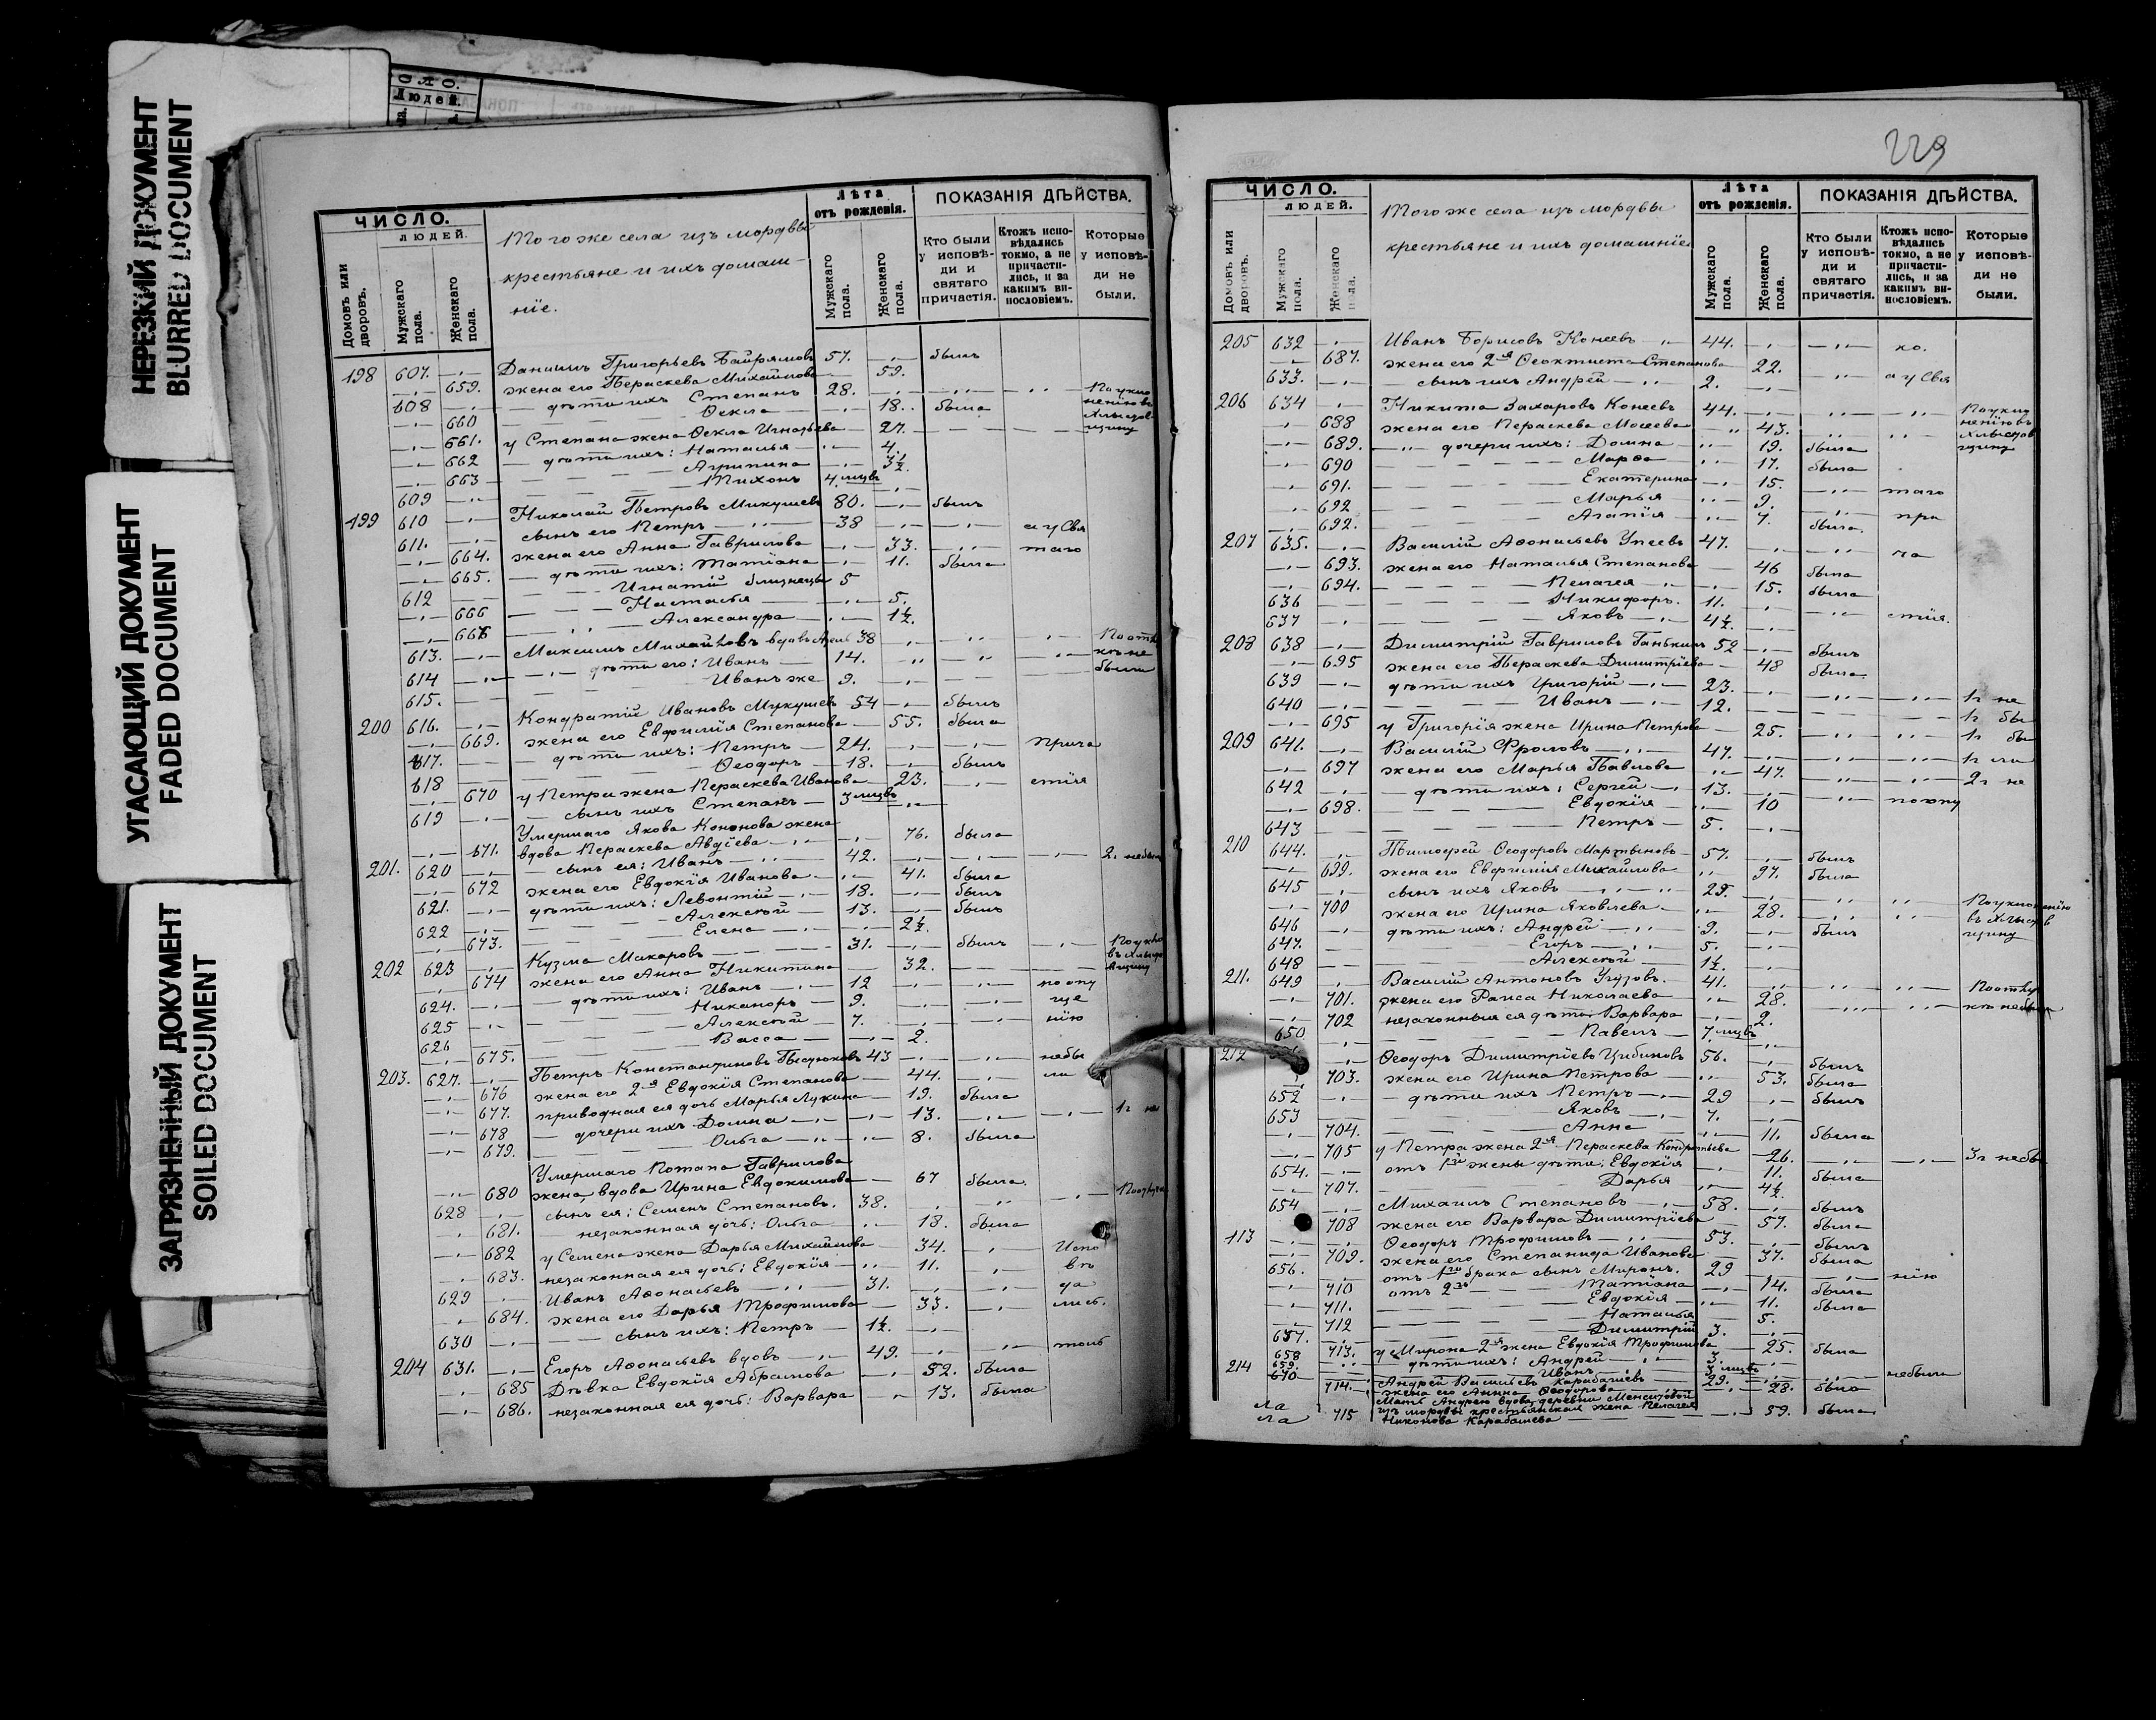 НЕРЕЗКИЙ ДОКУМЕНТ
BLURRED DOCUMENT
УГАСАЮЩИЙ ДОКУМЕНТ
FADED DOCUMENT
ЗАГРЯЗНЕННЫЙ ДОКУМЕНТ
SOILED DOCUMENT
Людей.
ЧИСЛО.
ЛЮДЕЙ.
Домовъ или дворовъ.
Мужскаго пола.
Женскаго пола.
Того же села изъ мордвы
крестьяне и ихъ домаш-
ніе.
Лѣта
отъ рожденія.
Мужскаго пола.
Женскаго пола.
ПОКАЗАНІЯ ДѢЙСТВА.
Кто были у исповѣ-ди и святаго причастія.
Ктожъ испо-вѣдались токмо, а не причасти-лись, и за какимъ ви-нословіемъ.
Которые у исповѣ-ди не были.
198 607. Даниилъ Григорьевъ Байрямовъ 57. былъ
659. жена его Пераскева Михайлова 59.
608 дѣти их Степанъ 28.
660 Ѳекла 18. была
661. у Степана жена Ѳекла Игнатьева 27.
662 дѣти ихъ: Наталья 4.
663 Агрипина 3½.
609 Тихонъ 4 мцвъ
199 610 Николай Петровъ Микушевъ 80. былъ
611. сынъ его Петръ 38 а у Свя
664. жена его Анна Гаврилова 33. таго
665. дѣти ихъ: Татіана 11. была
612 Игнатій близнецы 5
666 Настасья 5.
666 Александра 1½.
613. Максимъ Михайловъ вдовъ 38
614 дѣти его: Иванъ 14.
615. Иванъ же 9.
200 616. Кондратій Ивановъ Микушевъ 54 былъ
669. жена его Евфимія Степанова 55. была
617. дѣти ихъ: Петръ 24. прича
618 Ѳеодоръ 18. былъ
670 у Петра жена Пераскева Иванова 23. стія
619 сынъ ихъ Степанъ 3 мцвъ
Умершаго Якова Кононова жена
671. вдова Пераскева Авдіева 76. была
201. 620 сынъ ея: Иванъ 42. 2. небыл
672 жена его Евдокія Иванова 41. была
621. дѣти ихъ: Левонтій 18. былъ
622 Алексѣй 13. былъ
673. Елена 2½.
202 623 Кузма Макаровъ 31. былъ
674 жена его Анна Никитина 32.
624. дѣти ихъ: Иванъ 12 по опу
625 Никаноръ 9. ще
626 Алексѣй 7. нію
675. Васса 2.
203. 627. Петръ Константиновъ 43 небы
676 жена его 2я Евдокія Степанова 44. ли
677. приводная ея дочь Марья Лукина 19. была
678 дочери ихъ Домна 13. 1г не
679. Ольга 8. была
Умершаго Потапа Гаврилова
680 жена, вдова Ирина Евдокимова 67 была.
628 сынъ ея: Семенъ Степановъ. 38.
681. незаконная дочь: Ольга 18. была
682 у Семена жена Дарья Михайлова 34. Испо
683. незаконная ея дочь: Евдокія 11. вѣ
629 Иванъ Аѳонасьевъ 31. да
684. жена его Дарья Трофимова 33. лис.
630 сынъ ихъ: Петръ 1½.
204 631. Егоръ Аѳонасьевъ вдовъ 49. толь
685 Дѣвка Евдокія Абрамова 52. была
686. незаконная ея дочь: Варвара 13. была
229
ЧИСЛО.
ЛЮДЕЙ.
Домовъ или дворовъ.
Мужскаго пола.
Женскаго пола.
Того же села изъ мордвы
крестьяне и ихъ домашніе
Лѣта
отъ рожденія.
Мужскаго пола.
Женскаго пола.
ПОКАЗАНІЯ ДѢЙСТВА.
Кто были у исповѣ-ди и святаго причастія.
Ктожъ испо-вѣдались токмо, а не причасти-лись, и за какимъ ви-нословіемъ.
Которые у исповѣ-ди не были.
205 632 Иванъ Борисовъ Конеевъ 44. ко.
687. жена его 2я Ѳеоктиста Степанова 22.
633. сынъ ихъ Андрей 2. а у Свя
206 634 Никита Захаровъ Конеевъ 44.
688 жена его Пераскева Мосеева 43.
689. дочери ихъ: Домна 19. была
690 Марѳа 17. была
691. Екатерина 15.
692 Марья 9. таго
692. Агапія 7. была. при
207 635. Василій Аѳонасьевъ Упеевъ 47. ча
693. жена его Наталья Степанова 46 была
694. Пелагея 15. была
636 Никифоръ. 11.
637 Яковъ 4½. стія.
208 638 Димитрій Гавриловъ Ганькинъ 52 былъ
695 жена его Пераскева Димитріева 48 была
639 дѣти ихъ Григорій 23.
640 Иванъ 12. 1г не
695 у Григорія жена Ирина Петрова 25. 1г бы
209 641. Василій Фроловъ 47.
697 жена его Марья Павлова 47. 1г ли
642 дѣти ихъ: Сергей 13. 2г не
698. Евдокія 10 по опу
643 Петръ 5.
210 644. Тимоѳей Ѳеодоровъ Мартыновъ 57. былъ
699. жена его Евфимія Михайлова 97. была
645 сынъ ихъ Яковъ 29.
700 жена его Ирина Яковлева 28.
646 дѣти ихъ: Андрей 9. былъ
647. Егоръ 5.
648 Алексѣй 1½.
211. 649 Василій Антоновъ Угузовъ. 41.
701. жена его Раиса Николаева 28.
702 незаконныя ея дѣти Варвара 2.
650 Павелъ 7 мцвъ
212 Ѳеодоръ Димитріевъ Цибиновъ 56. былъ
703. жена его Ирина Петрова 53. была
652 дѣти ихъ Петръ 29 былъ
653 Яковъ 7.
704. Анна 11. была
705 у Петра жена 2я Пераскева Кондратьева 26. 3г небы
654. отъ 1й жены дѣти: Евдокія 11. была
707. Дарья 4½
654 Михаилъ Степановъ 58. былъ
708 жена его Варвара Димитріева 57. была
113 Ѳеодоръ Трофимовъ 53. былъ
709. жена его Степанида Иванова 37. была
656. отъ 1го брака сынъ Миронъ. 29 нію
710 отъ 2го Татіана 14. была
711. Евдокія 11. была
712 Наталья 5.
657. Димитрій 3.
713. у Мирона 2я жена Евдокія Трофимова 25. была
658 дѣти ихъ: Андрей 3.
659. Иванъ 3 мцвъ
214 670 Андрей Васильевъ Карабашевъ 29. небыли
714. жена его Анна Ѳеодорова 28. была
Мать Андрею вдова, деревни
изъ мордвы крестьянская жена Пелагея
715 Никонова Карабашева 59. была